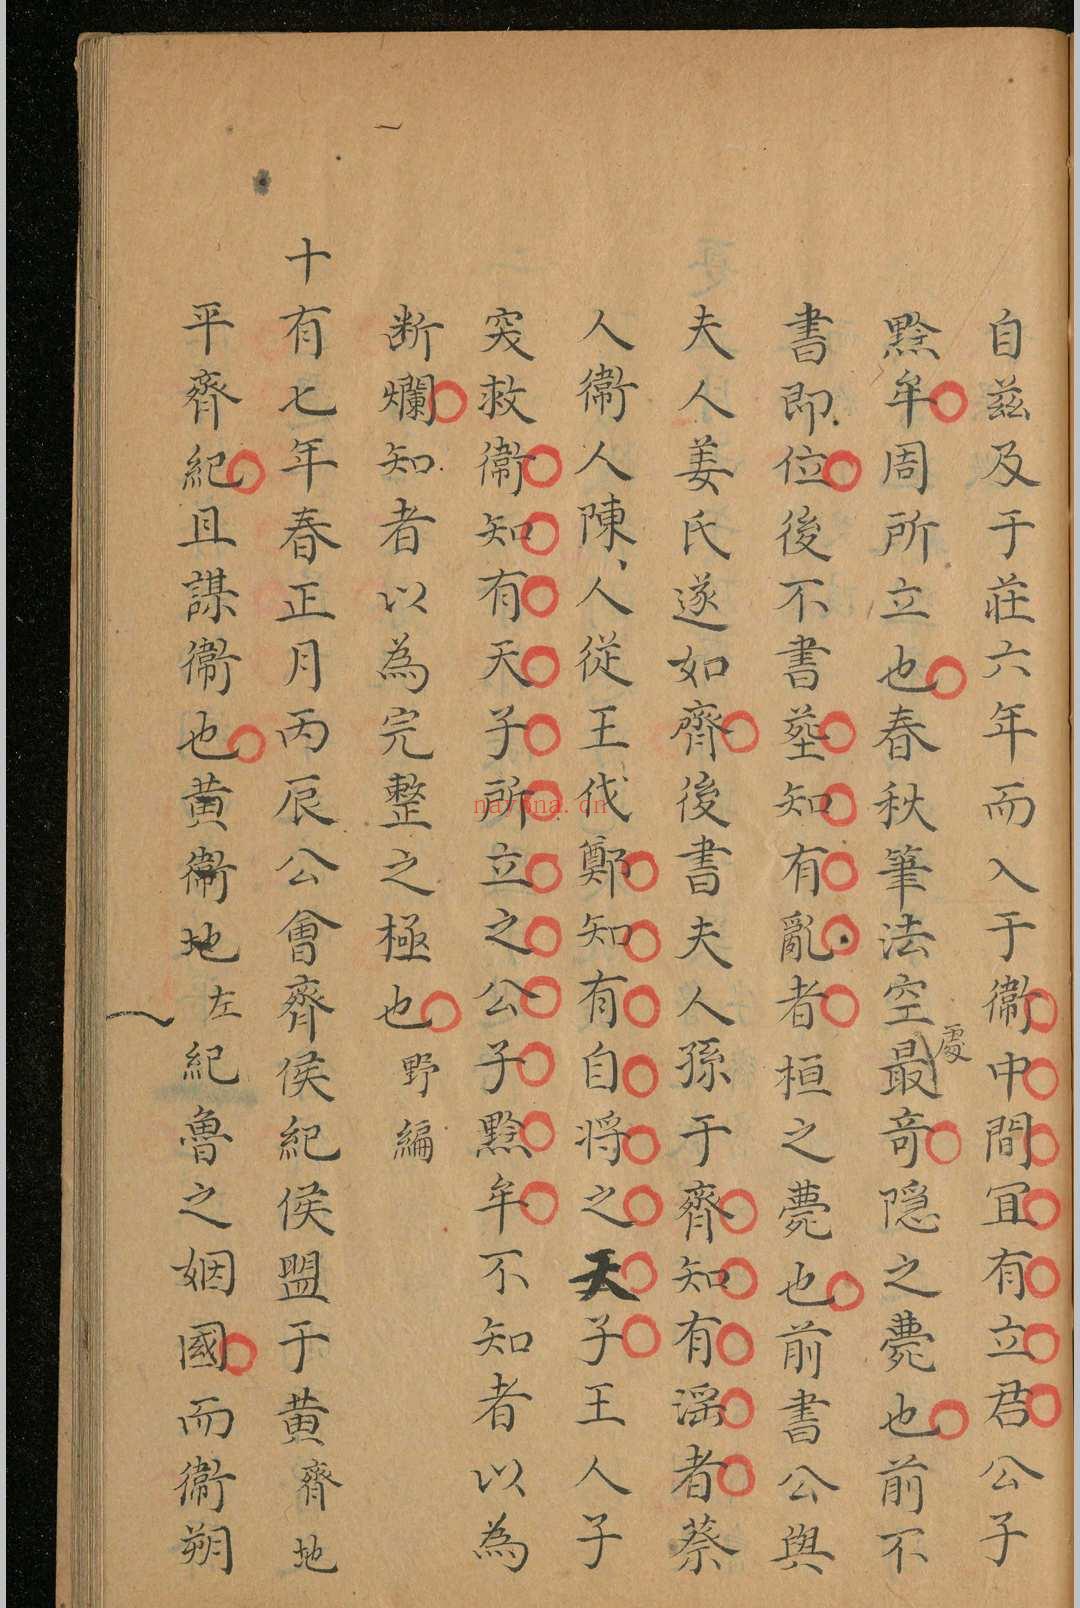 自茲及于莊六年而入于衞中間冝有立君公子
黔牟周所立也春秋筆法空最處竒隱之薨也前不
書即位後不書塟知有亂者桓之薨也前書公與
夫人姜氏遂如齊後書夫人孫于齊知有滛者蔡
人衞人陳人從王伐鄭知有自将之天子王人子
突救衞知有天子所立之公子黔牟不知者以為
断爛知者以為完整之極也野編
十有七年春正月丙辰公會齊侯紀侯盟于黄齊地
平齊紀且謀衞也黄衞地左紀魯之姻國而衞朔
nayona.cn